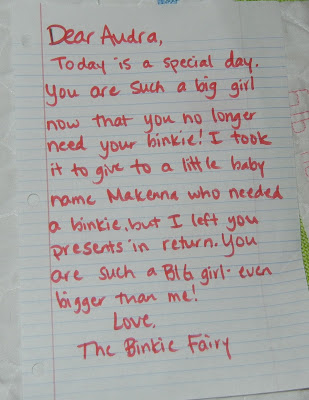 Dear Audra,
Today is a special day.
You are such a big girl
now that you no longer
need your binkie! I took
it to give to a little baby
name Makenna who needed
a binkie, but I left you
presents in return. You
are such a BIG girl- even
bigger than me!
Love,
The Binkie Fairy